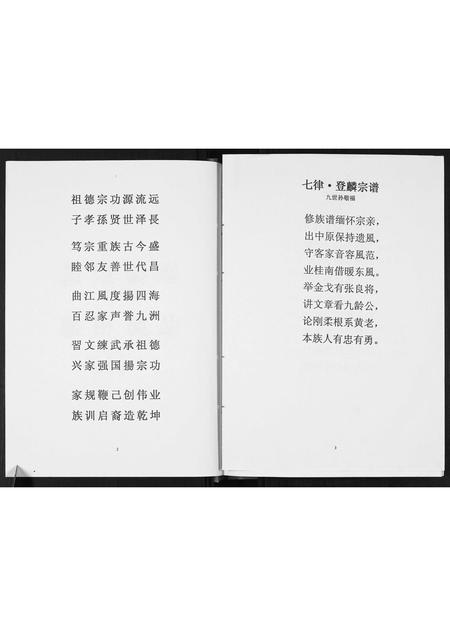 祖德宗功源流远
子孝孫贤世泽長
笃宗重族古今盛
睦邻友善世代昌
曲江風度揚四海
百忍家声誉九洲
習文練武承祖德
兴家强国揚宗功
家规鞭己创伟业
族训启裔造乾坤
2
七律·登麟宗谱
九世孙敬福
修族谱缅怀宗亲，
出中原保持遗風，
守客家音容風范，
业桂南借暖东風。
举金戈有张良将，
讲文章看九龄公，
论刚柔根系黄老，
本族人有忠有勇。
3